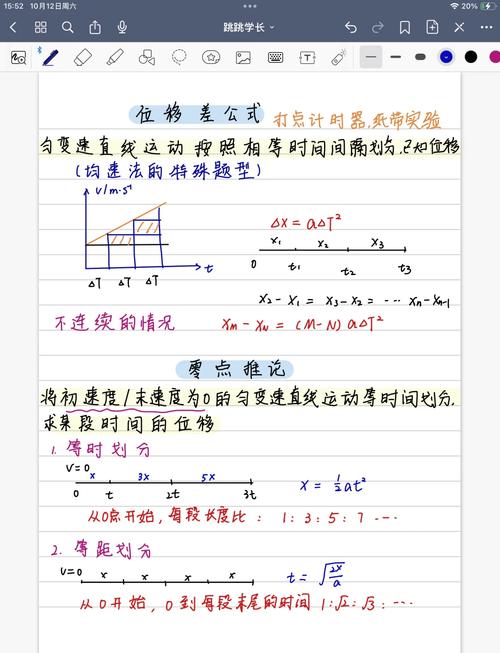 15:52 10月12日周六
20%
跳跳学长
位移差公式 打点计时器,纸带实验
匀变速直线运动 按照相等时间间隔划分,已知位移
(均速法的特殊题型)
v/m·s⁻¹
t
ΔT ΔT ΔT
Δx = aΔT²
x₁ x₂ x₃
0 t₁ t₂ t₃
x₂ - x₁ = x₃ - x₂ = ··· xₙ - xₙ₋₁
不连续的情况 xₘ - xₙ = (M-N) aΔT²
零点推论
将初速度/末速度为0的匀变速直线运动等时间划分,
求某段时间的位移
1. 等时划分
v=0 x 3x 5x
0 t 2t 3t
x = ½at²
从0点开始,每段长度比: 1:3:5:7 ····
2. 等距划分
v=0 x x x x
t = √(2x/a)
从0开始,0到每段末尾的时间 1:√2:√3: ····